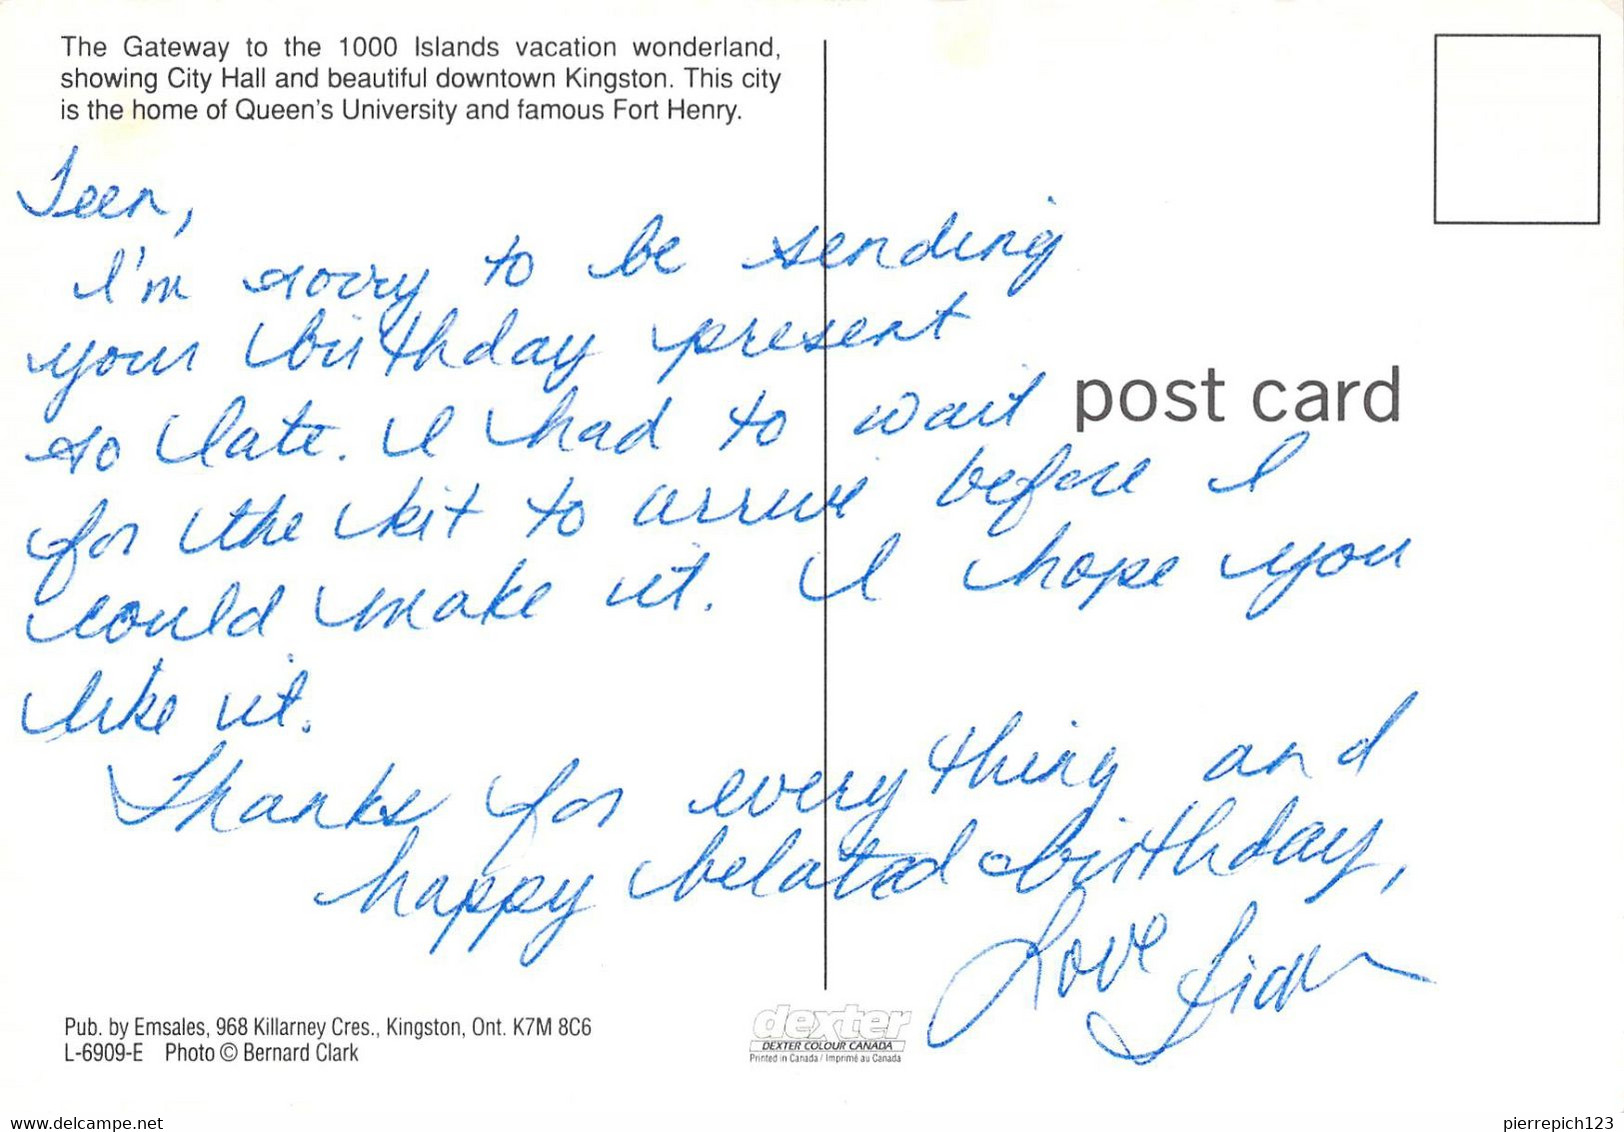 The Gateway to the 1000 Islands vacation wonderland,
showing City Hall and beautiful downtown Kingston. This city
is the home of Queen's University and famous Fort Henry.
Teen,
I'm sorry to be sending
your birthday present
so late. I had to wait
for the kit to arrive before I
could make it. I hope you
like it.
Thanks for everything and
happy belated birthday,
Love
post card
Pub. by Emsales, 968 Killarney Cres., Kingston, Ont. K7M 8C6
L-6909-E Photo © Bernard Clark
dexter
DEXTER COLOUR CANADA
Printed in Canada / Imprimé au Canada
delcampe.net
pierrepich123